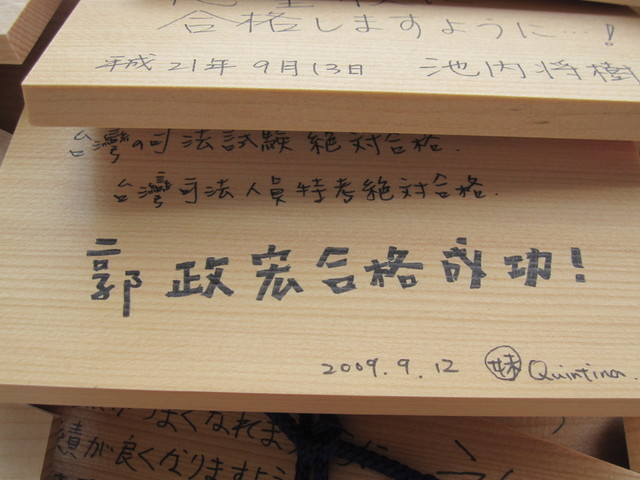 合格しますように…!
平成21年9月13日 池内将樹
台灣の司法試験絶対合格.
台灣司法人員特考絶対合格.
郭政宏合格成功!
2009.9.12 妹 Quintina.
つよくなれますように
績が良くなりますよう